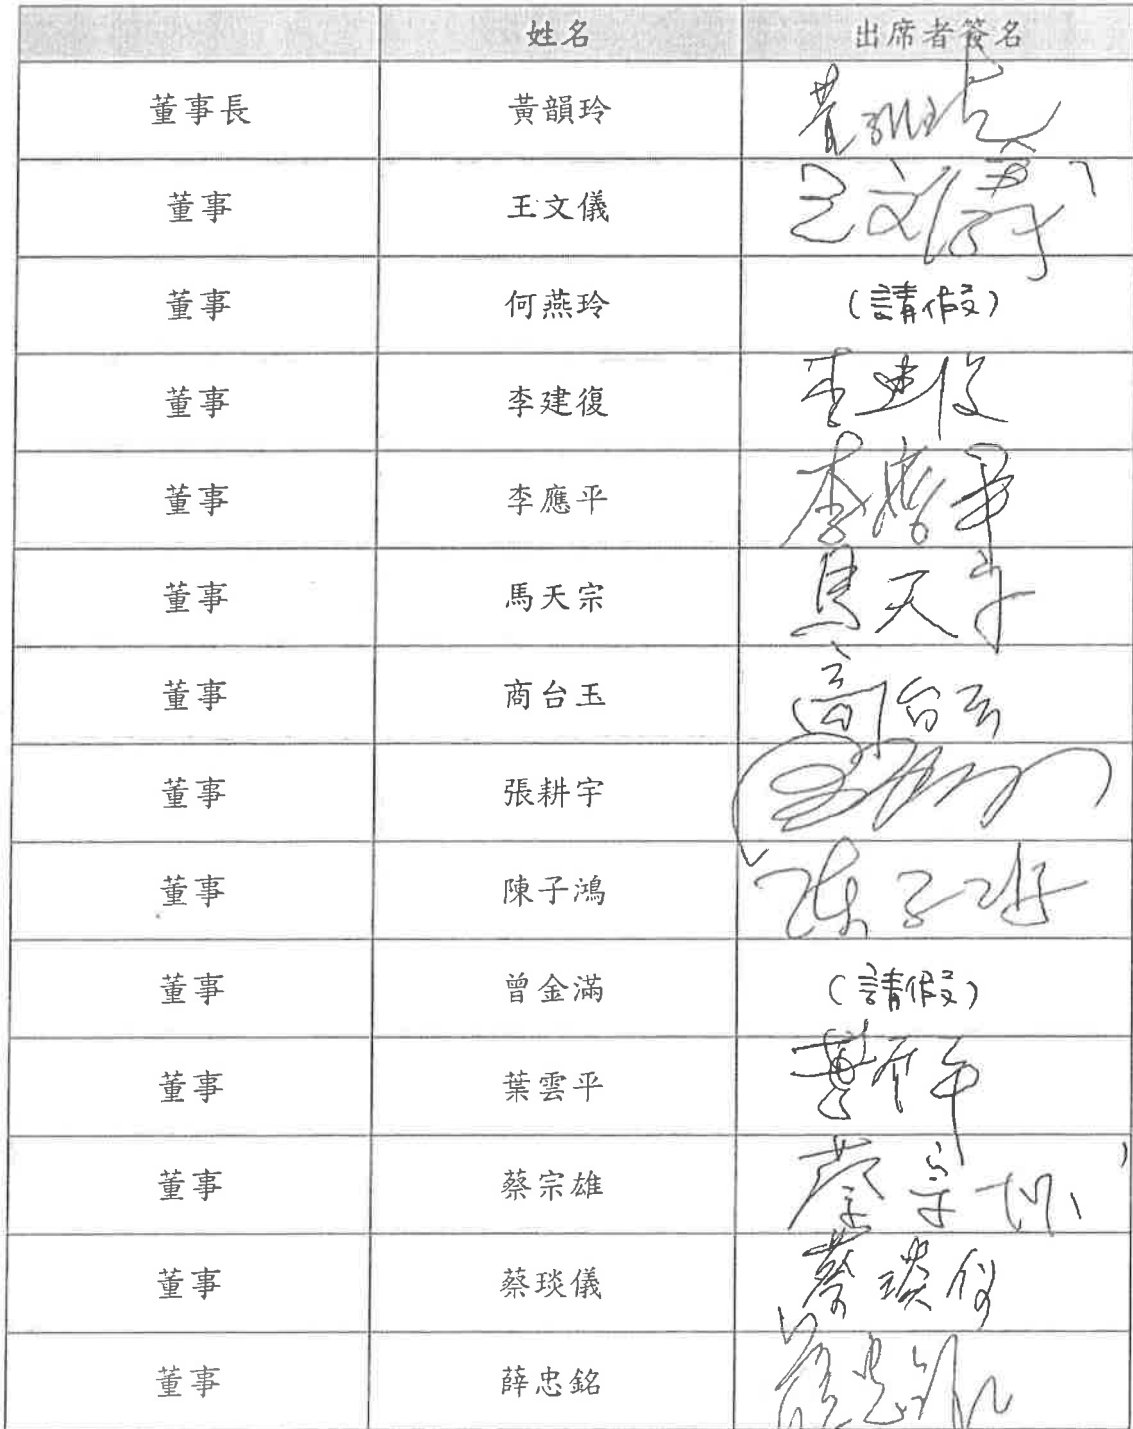 姓名 出席者簽名
董事長 黃韻玲
董事 王文儀 王文儀
董事 何燕玲 (請假)
董事 李建復 李建復
董事 李應平 李應平
董事 馬天宗 馬天宗
董事 商台玉 商台玉
董事 張耕宇
董事 陳子鴻 陳子鴻
董事 曾金滿 (請假)
董事 葉雲平
董事 蔡宗雄 蔡宗雄
董事 蔡琰儀 蔡琰儀
董事 薛忠銘 薛忠銘